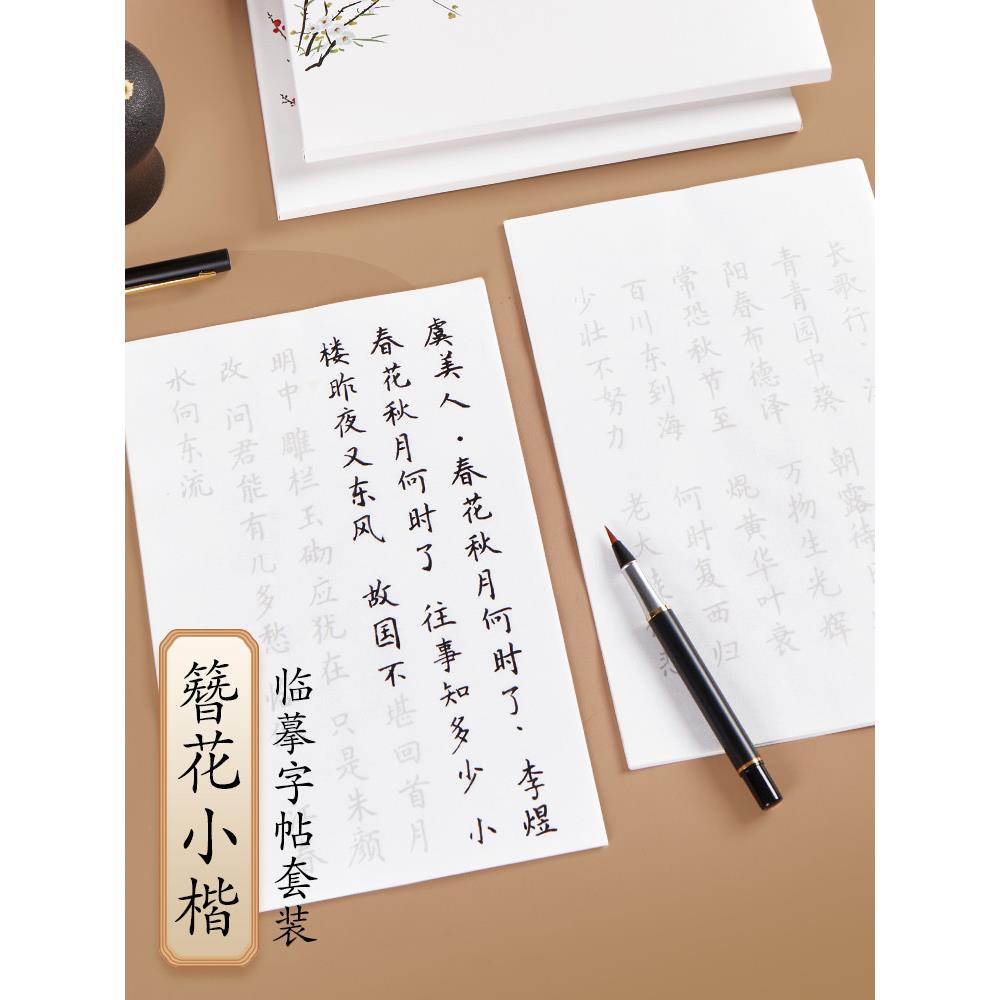 虞美人·春花秋月何时了、李煜
春花秋月何时了 往事知多少 小
楼昨夜又东风 故国不堪回首月
明中 雕栏玉砌应犹在 只是朱颜
改 问君能有几多愁 春
水向东流
长歌行、
青青园中葵 朝露待
阳春布德泽 万物生光辉
常恐秋节至 焜黄华叶衰
百川东到海 何时复西归
少壮不努力 老大 悲
簪花小楷
临摹字帖套装